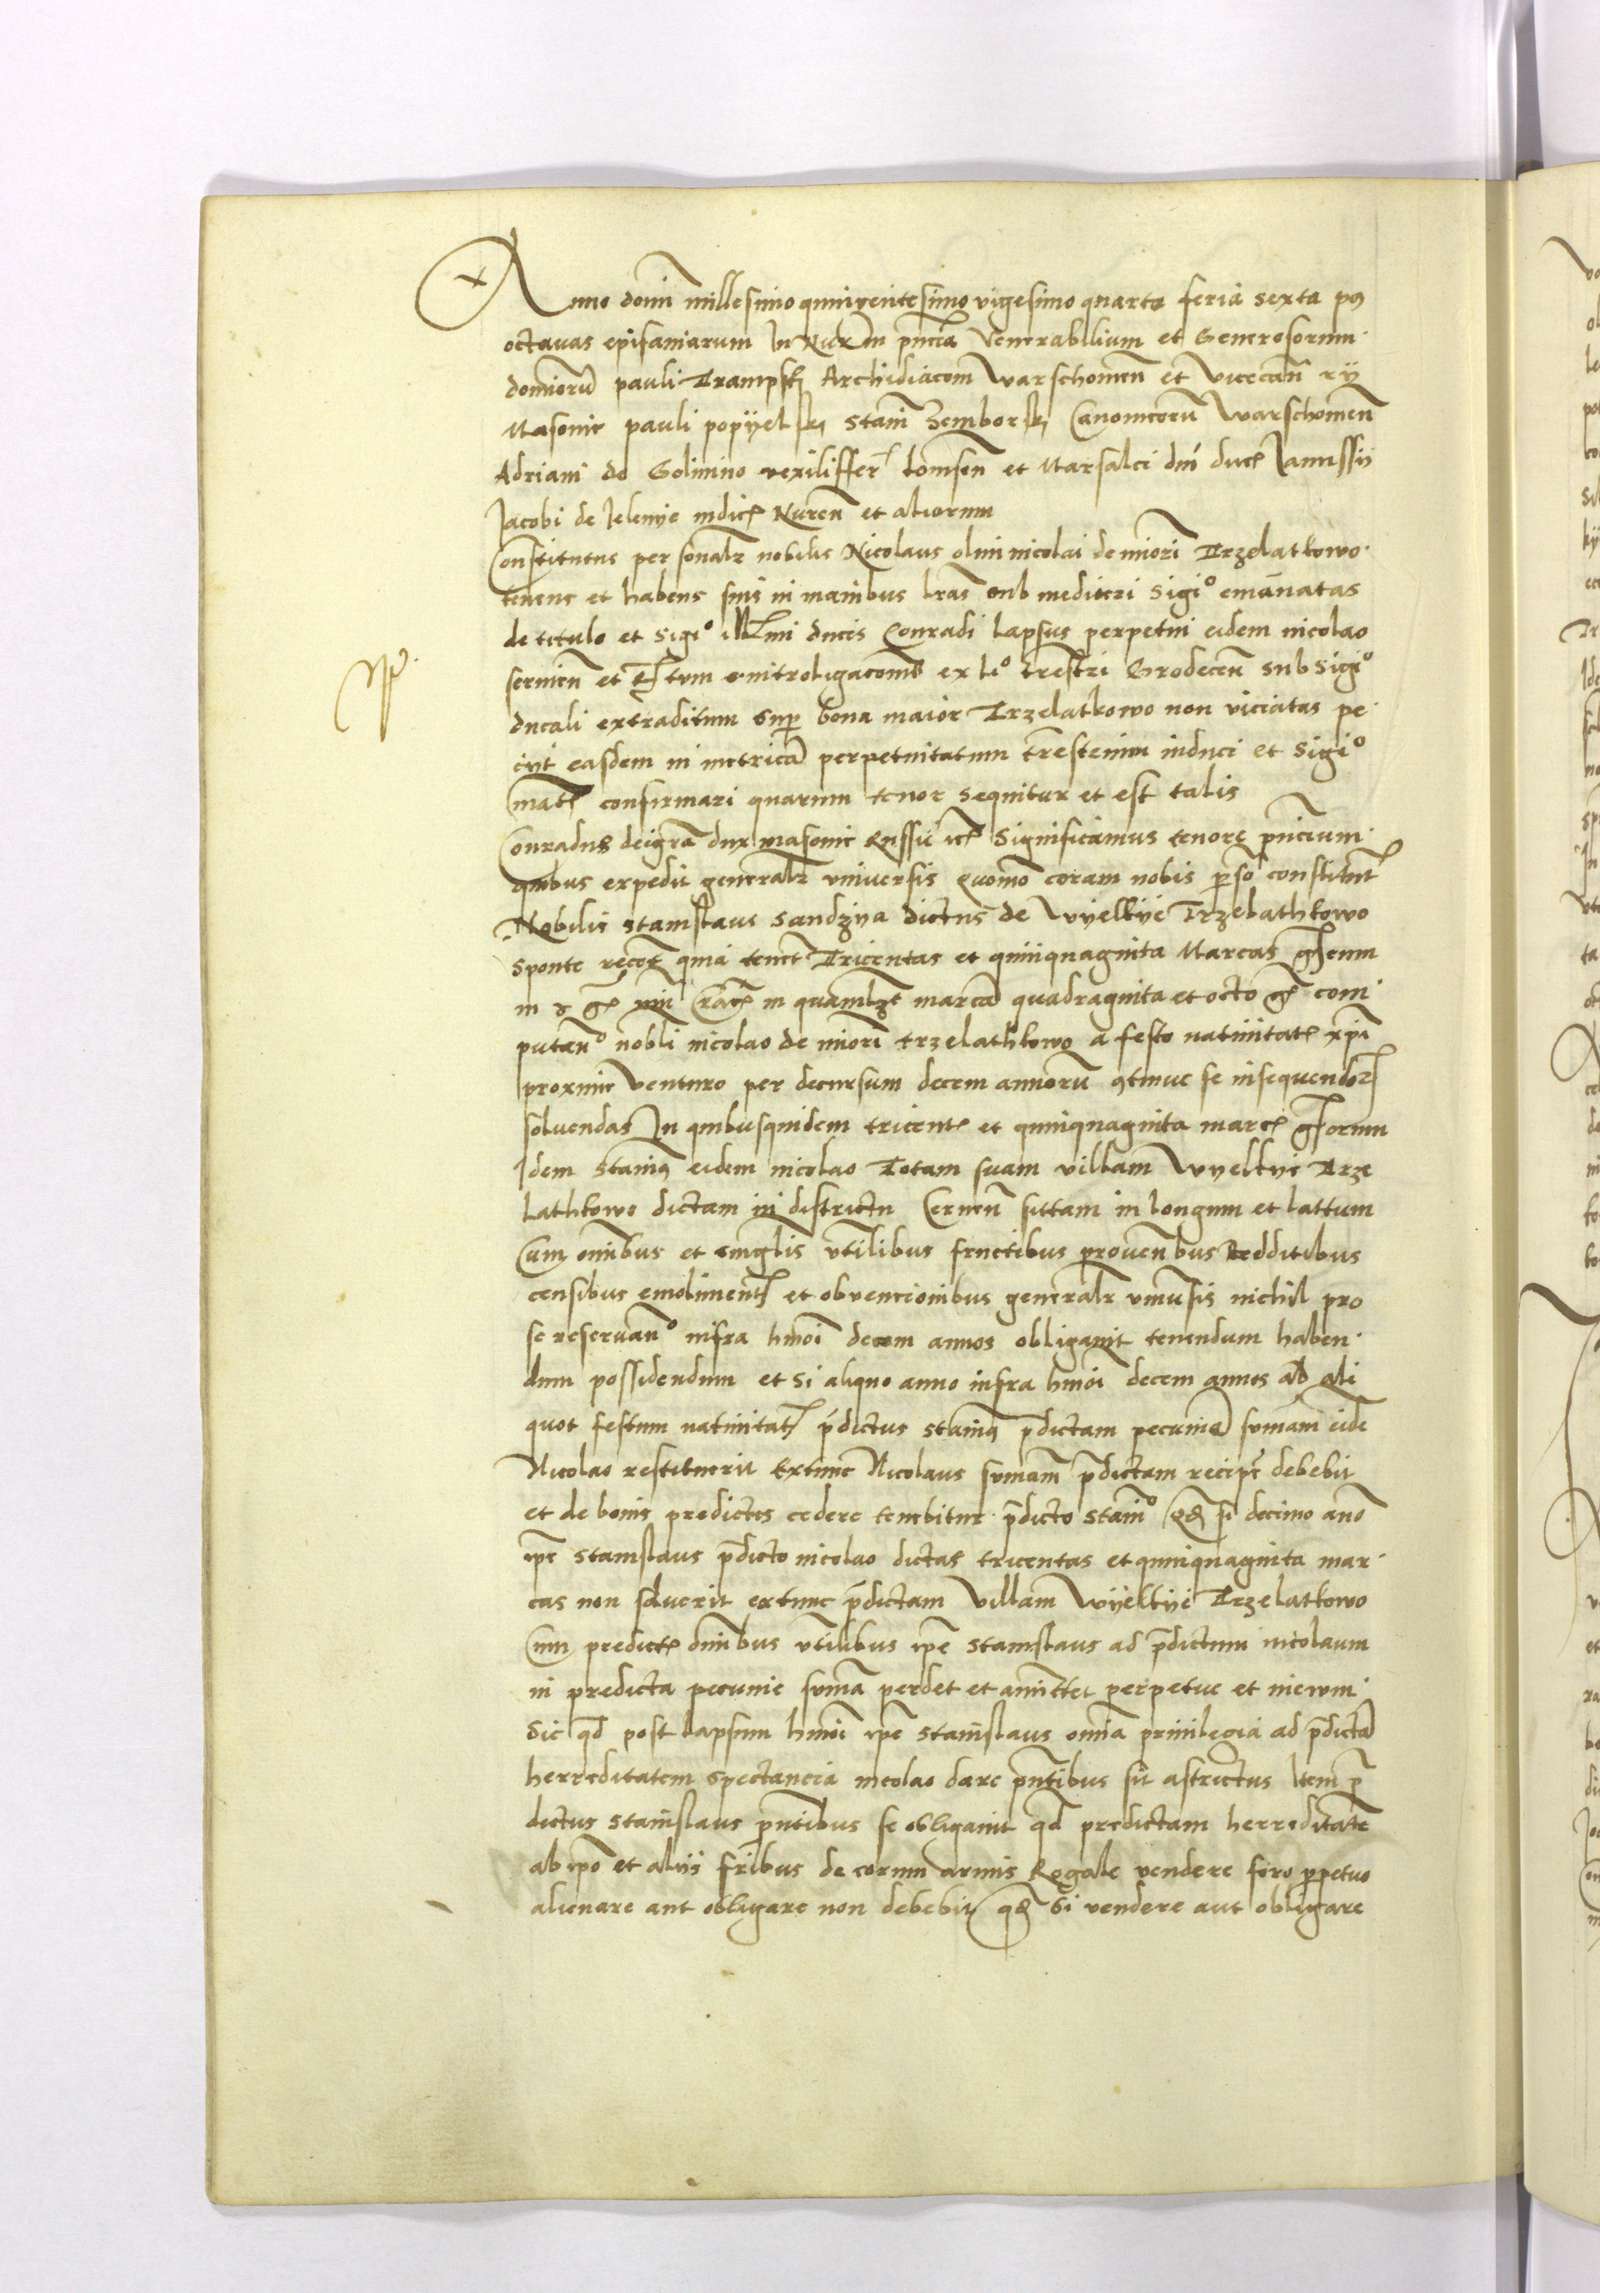 Anno domi millesimo quinivents̄imo vigesimo quarto feria sexta pꝰ
octavas epifaniarum In Nur in pn̄cia Venerabilium et Generosorum
domiorū pauli Trampsky Archidiaconi Warschomēn et vicecan̄
Masonie pauli popyelsky stani Zemborsky Canonicorū Warschomēn
Adriani de Golimino vexilifferi lomsēn et Marsalci dni ducis Janussij
Jacobi de Jelenye iudicis Nurēn et aliorum
Constituens personalr nobilis Nicolaus olim nicolai de miori Trzelatkowo
tenens et habens suis in manibus lr̄as sub mediocri sigiº emanatas
de titulo et sigiº illmi ducis Conradi lapsus perpetui eidem nicolao
et ex liº trestri Grodecēn sub sigiº
ducali extraditum sup bona maior Trzelatkowo non viciatas pe
cyt easdem in metricā perpetuitatum trestenium induci et sigiº
confirmari quarum tenor sequitur et est talis
Conradus dei grā dux masonie Russie etc significamus tenore pn̄cium
quibus expedit generalr vniversis Quomō coram nobis pers̄o constitut
Nobilis stanislaus sandzya dictus de Wyelkye Trzelathkowo
sponte recog quia tenet Tricentas et quinquaginta Marcas
in quamlzt marcā quadraginta et octo com
putanº nobli nicolao de miori trzelathkowo a festo natiuitatis xp̄i
proxime venturo per decursum decem annorū 9tinue se insequendor
soluendas In quibusquidem tricentis et quinquaginta marcis
Idem staniꝰ eidem nicolao Totam suam villam Wyelkye Trze
lathkowo dictam in districtu Cernēn sittam in longum et lattum
Cum omnibus et singlis vtilibus fructibus provenbus Redditibus
censibus emolimentis et obvencionibus generalr vniusis nichil pro
se reservanº infra hmōi decem annos obliganit tenendum haben
dum possidendum et si aliquo anno infra hmōi decem annos ab ali
quot festum natiuitatis p̄dictus staniꝰ p̄dictam pecunie sūmam eide
Nicolao restituerit Extunc Nicolaus sūmam p̄dictam recipe debebit
et de bonis predictis cedere tenebitur p̄dicto staniº si decimo ano
ipe stanislaus p̄dicto nicolao dictas tricentas et quinquaginta mar
cas non solverit extunc p̄dictam villam Wyelkye Trzelatkowo
Cum predictis omibus vtilibus ipe stanislaus ad p̄dictum nicolaum
in predicta pecunie sūma perdet et amittet perpetue et in ewm
Sic qd post lapsum hmōi ipe stanislaus omia priuilegia ad p̄dictā
herreditatem spectancia nicolao dare pn̄tibus sit astrictus Item p̄
dictus stanislaus pn̄tibus se obliganit qd predictam herreditatē
ab ipo et alijs fribus de eorum armis Regale vendere foro ppetuo
alienare aut obligare non debebit si vendere aut obligare